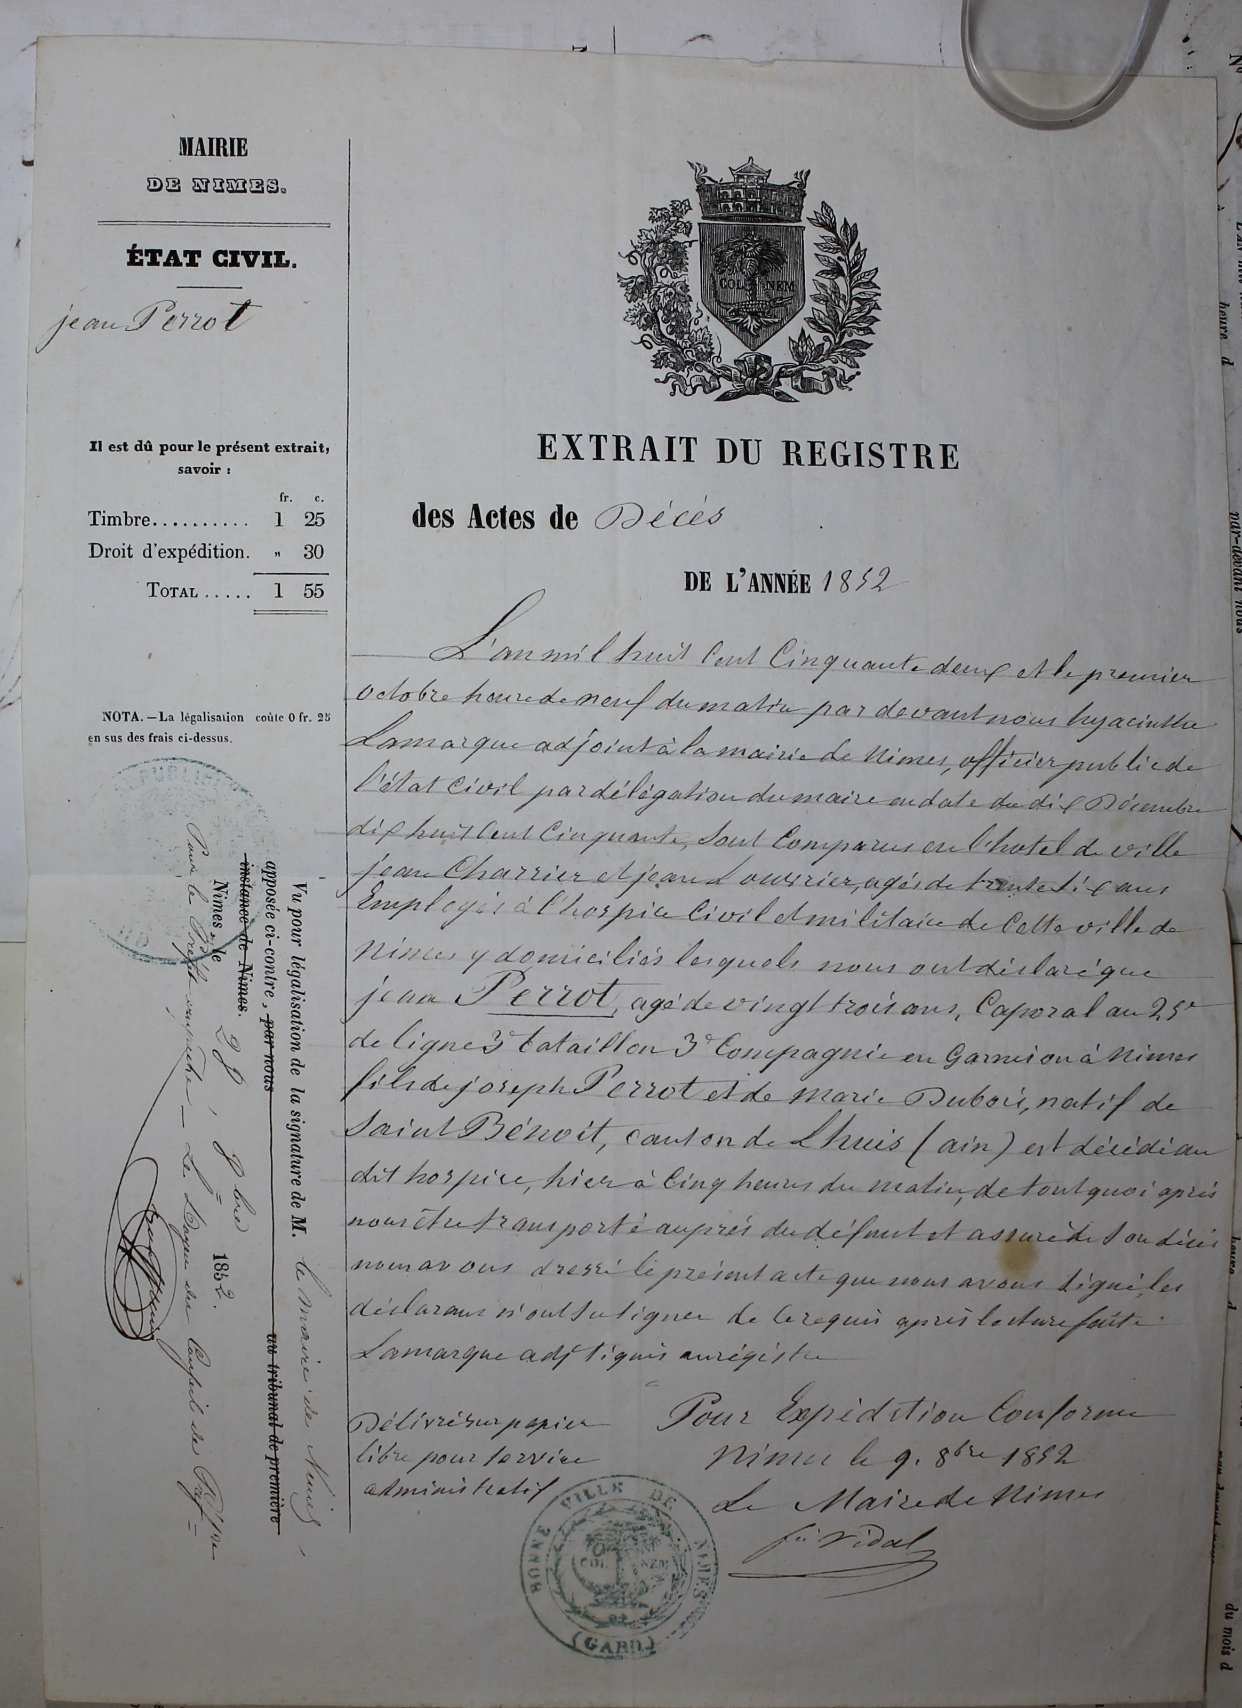 MAIRIE
DE NIMES.
ÉTAT CIVIL.
jean Perrot
Il est dû pour le présent extrait,
savoir :
fr. c.
Timbre.......... 1 25
Droit d'expédition. " 30
TOTAL ..... 1 55
NOTA.—La légalisation coûte 0 fr. 25
en sus des frais ci-dessus.
COL NEM
EXTRAIT DU REGISTRE
des Actes de Décès
DE L'ANNÉE 1852
L'an mil huit Cent Cinquante deux et le premier
octobre heure de neuf du matin par devant nous hyacinthe
Lamarque adjoint à la mairie de Nimes, officier public de
l'état Civil par délégation du maire en date du dix Décembre
dix huit Cent Cinquante, Sont Comparus en l'hotel de ville
jean Charrier et jean Louvrier, agés de trente six ans
Employés à l'hospice Civil et militaire de Cette ville de
Nimes y domiciliés lesquels nous ont déclaré que
jean Perrot, agé de vingt trois ans, Caporal au 25e
de ligne 3e bataillon 3e Compagnie en Garnison à Nimes
fils de joseph Perrot et de Marie Dubois, natif de
Saint Bénoit, canton de Lhuis (ain) est décédé au
dit hospice, hier à Cinq heures du matin, de tout quoi après
nous être transporté auprès du défunt et assuré de Son décès
nous avons dressé le présent acte que nous avons signé, les
déclarans n'ont Su signer de Ce requis après lecture faite
Lamarque adjt signé au régistre
Délivré sur papier
libre pour service
administratif
Pour Expédition Conforme
Nimes le 9. 8bre 1852
Le Maire de Nimes
Vidal
BONNE VILLE DE NIMES
COL NEM
(GARD)
Vu pour légalisation de la signature de M. le maire de Nimes,
apposée ci-contre, par nous au tribunal de première
instance de Nimes.
Nîmes, le 28 8bre 1852.
Pour le Préfet empêché — Le Doyen du Conseil de Préfre